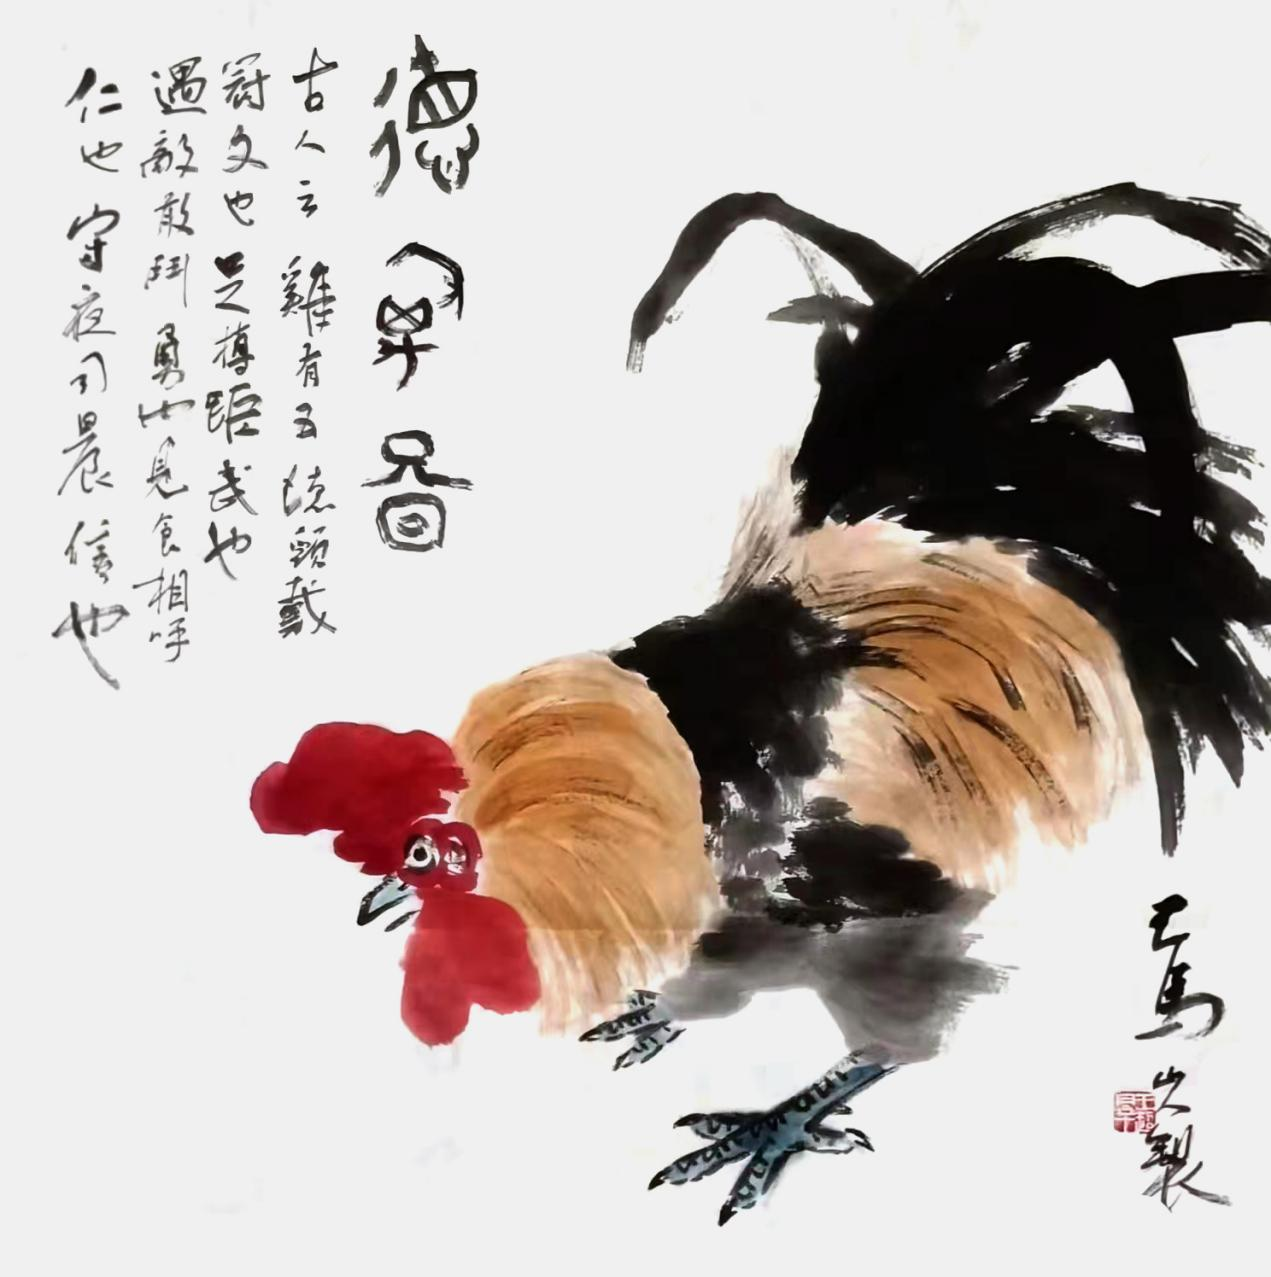 德禽圖
古人云雞有五德頭戴
冠文也足搏距武也
遇敵敢鬥勇也見食相呼
仁也守夜司晨信也
馬
製